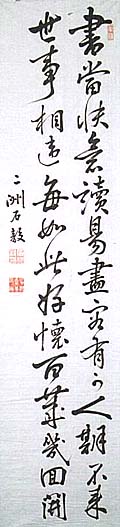 書當快意讀易盡客有可人期不來
世事相違每如此好懷百歲幾回開
二洲石毅